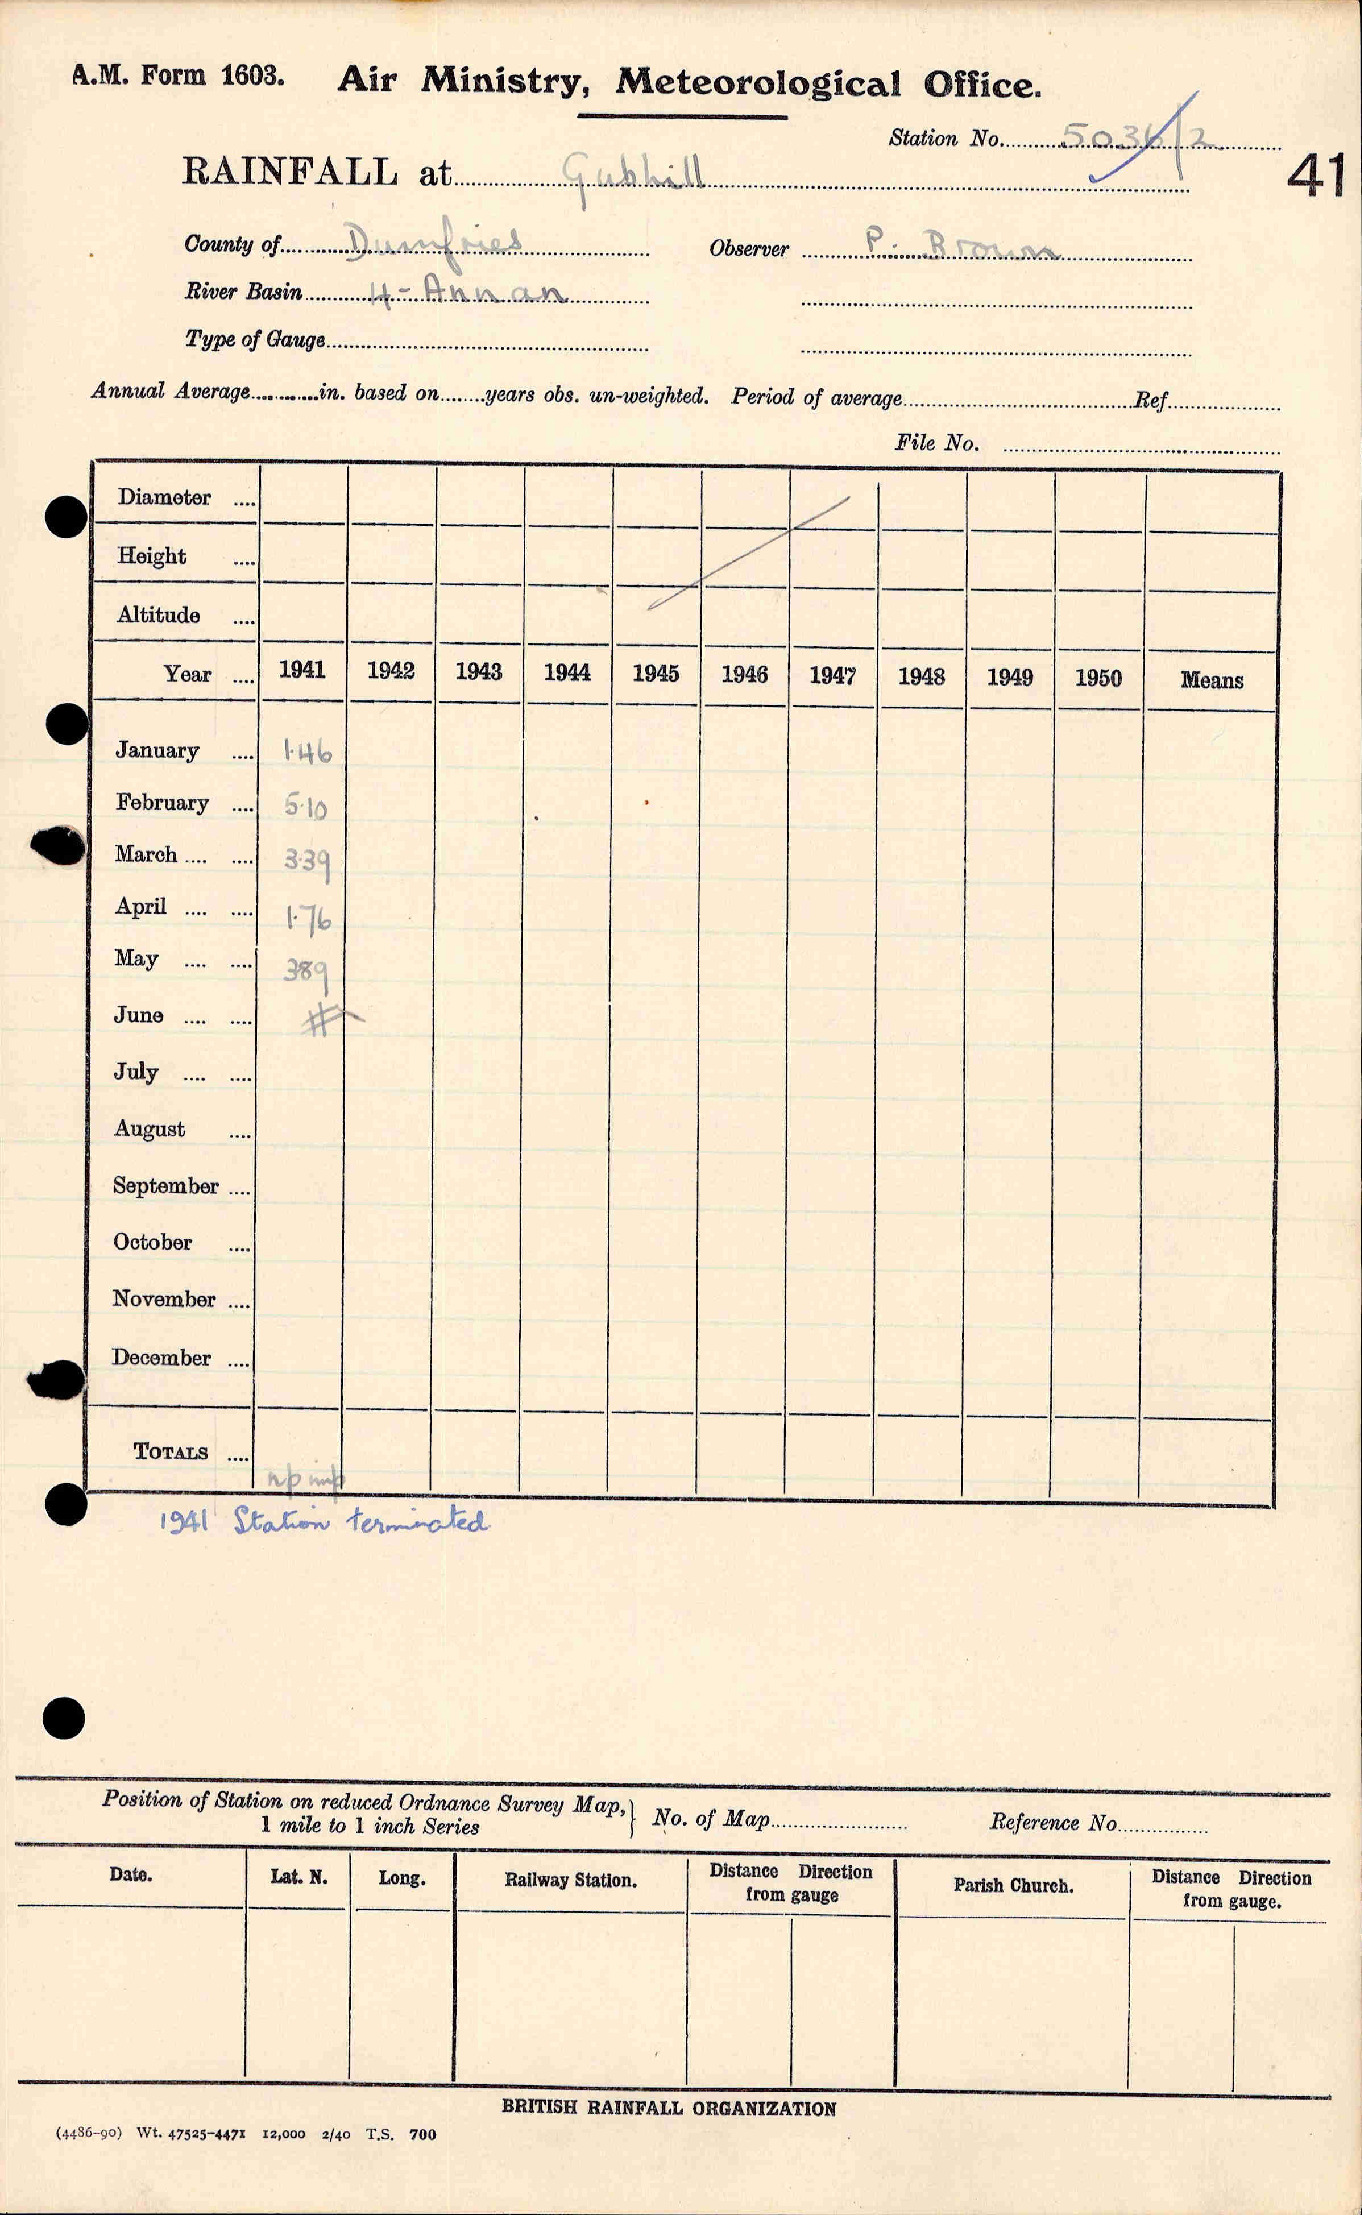 A.M. Form 1603. Air Ministry, Meteorological Office.
Station No. 5036/2
41
RAINFALL at Gubhill
County of Dumfries Observer P. Brown
River Basin 4 - Annan
Type of Gauge
Annual Average in. based on years obs. un-weighted. Period of average Ref.
File No.
Diameter
Height
Altitude
Year 1941 1942 1943 1944 1945 1946 1947 1948 1949 1950 Means
January 1.46
February 5.10
March 3.39
April 1.76
May 3.89
June #
July
August
September
October
November
December
TOTALS np imp
1941 Station terminated
Position of Station on reduced Ordnance Survey Map, } No. of Map Reference No.
1 mile to 1 inch Series
Date. Lat. N. Long. Railway Station. Distance Direction from gauge Parish Church. Distance Direction from gauge.
BRITISH RAINFALL ORGANIZATION
(4486-90) Wt. 47525-4471 12,000 2/40 T.S. 700